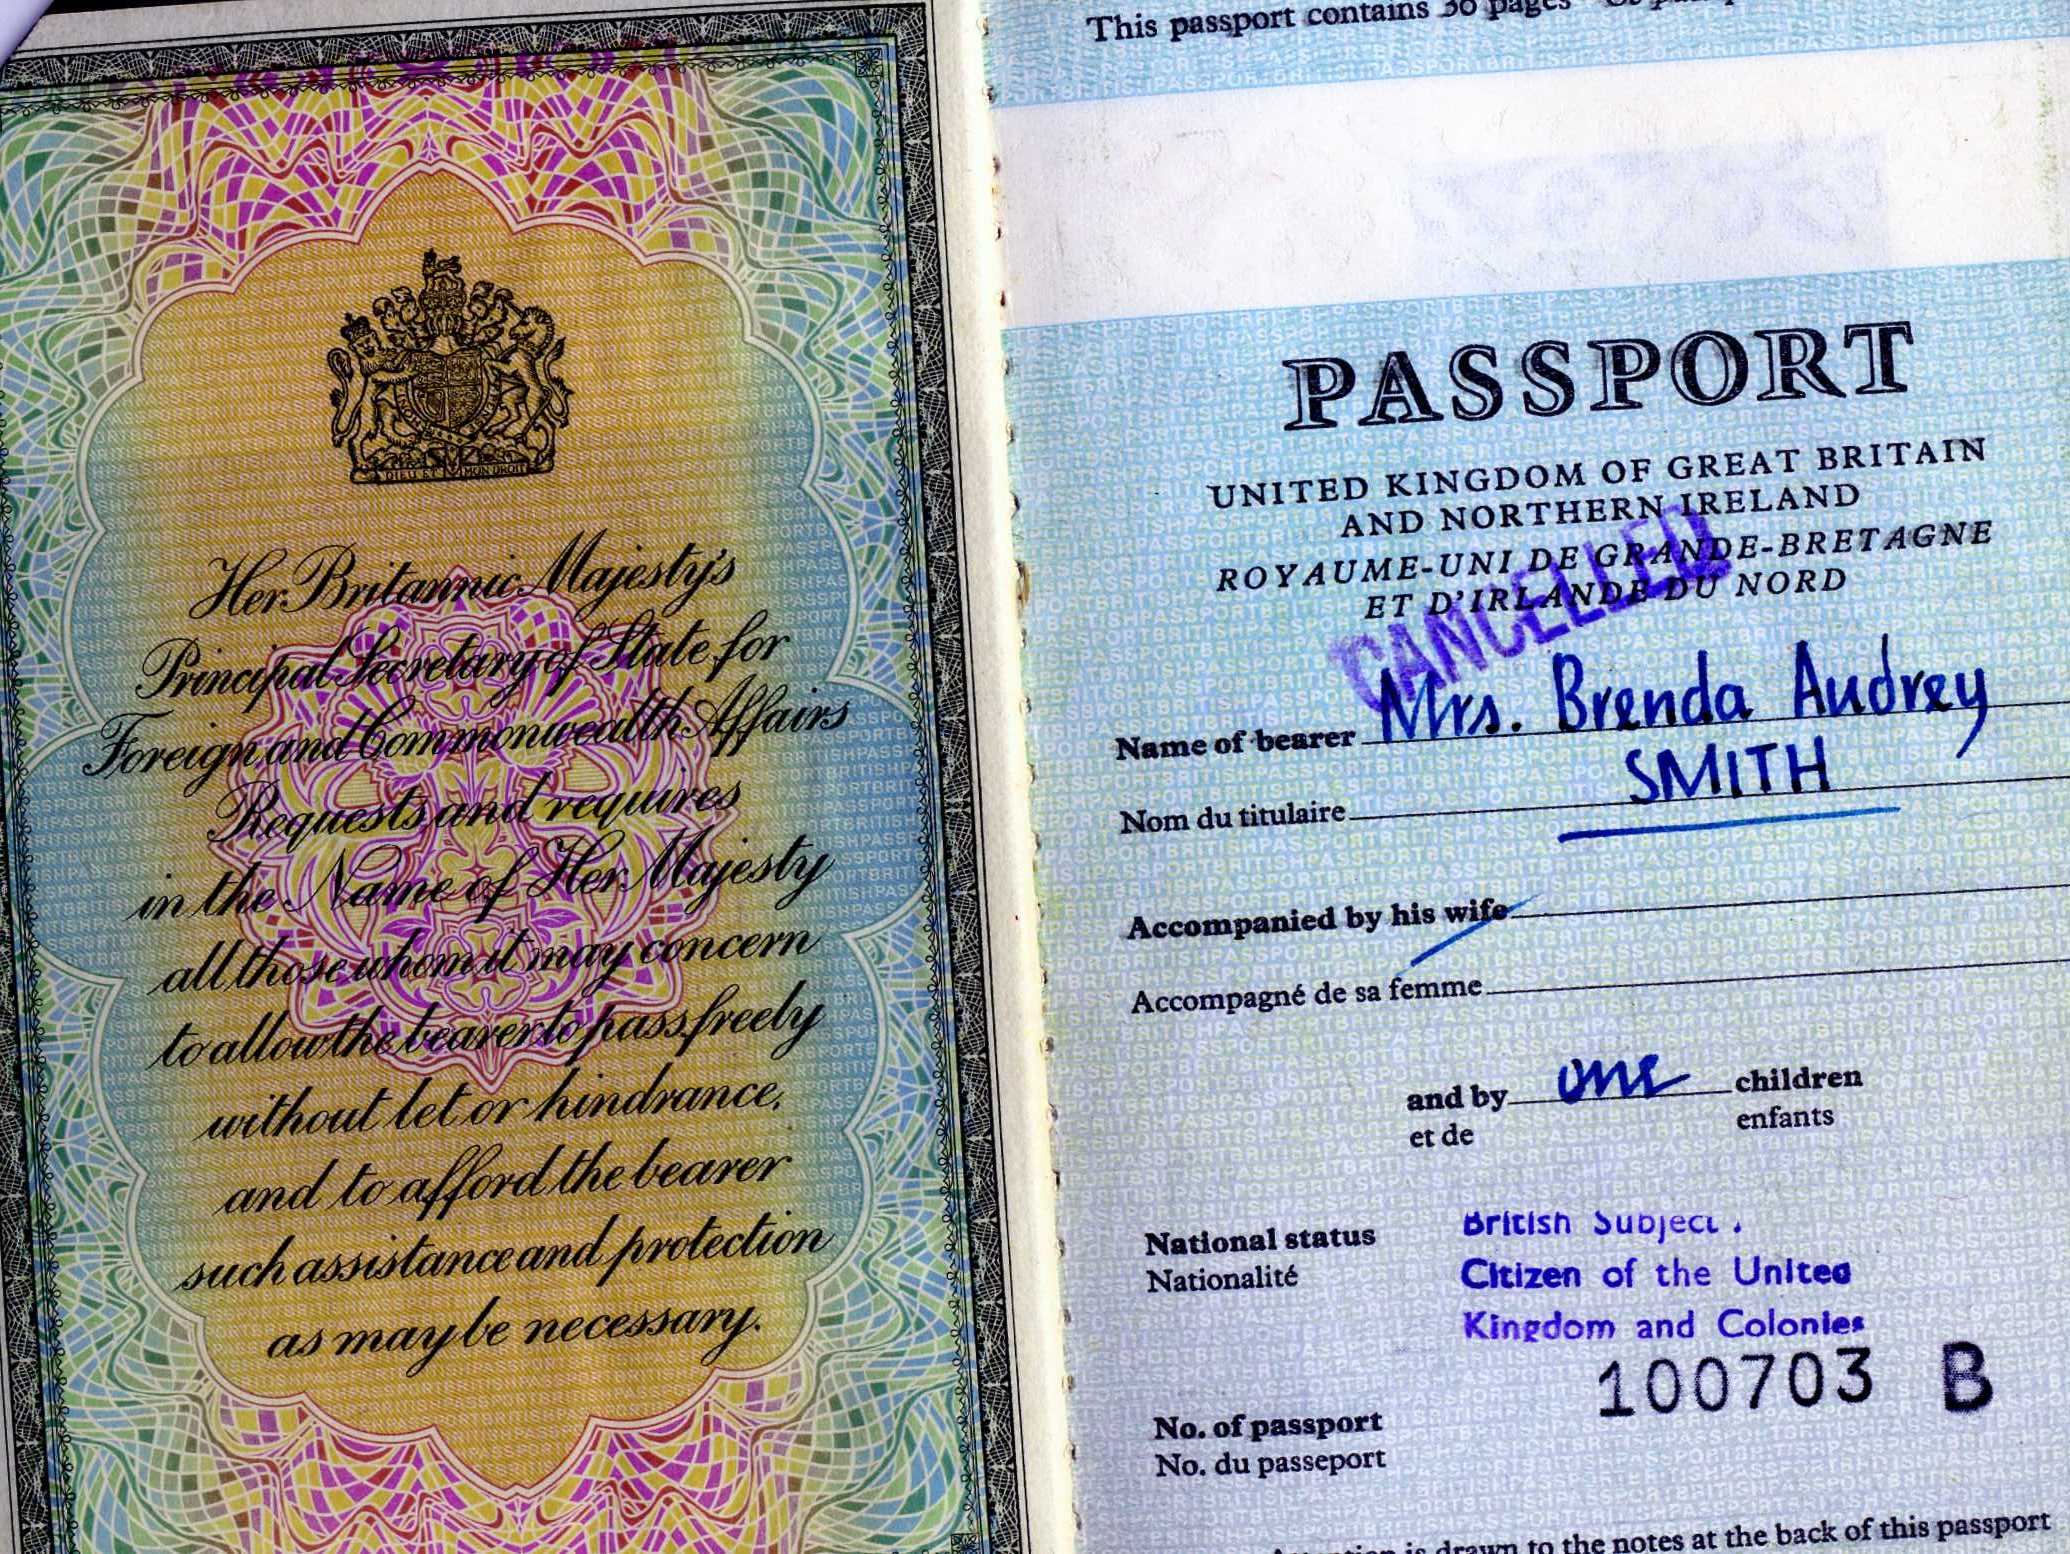 DIEU ET MON DROIT
Her Britannic Majesty's
Principal Secretary of State for
Foreign and Commonwealth Affairs
Requests and requires
in the Name of Her Majesty
all those whom it may concern
to allow the bearer to pass freely
without let or hindrance,
and to afford the bearer
such assistance and protection
as may be necessary.
This passport contains 30 pages
PASSPORT
UNITED KINGDOM OF GREAT BRITAIN
AND NORTHERN IRELAND
ROYAUME-UNI DE GRANDE-BRETAGNE
ET D'IRLANDE DU NORD
CANCELLED
Name of bearer Mrs. Brenda Audrey
Nom du titulaire SMITH
Accompanied by his wife
Accompagné de sa femme
and by one children
et de enfants
National status British Subject.
Nationalité Citizen of the United
Kingdom and Colonies
100703 B
No. of passport
No. du passeport
is drawn to the notes at the back of this passport